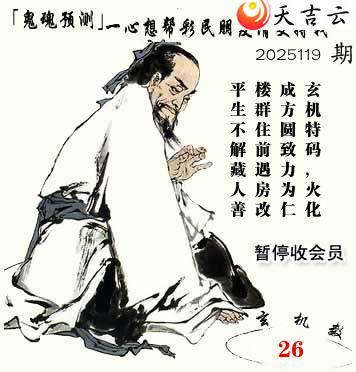 天吉云
「鬼魂预测」一心想帮彩民朋友
2025119 期
玄机特码，火化
成方圆致力为仁
楼群住前遇房改
平生不解藏人善
暂停收会员
玄机数
26